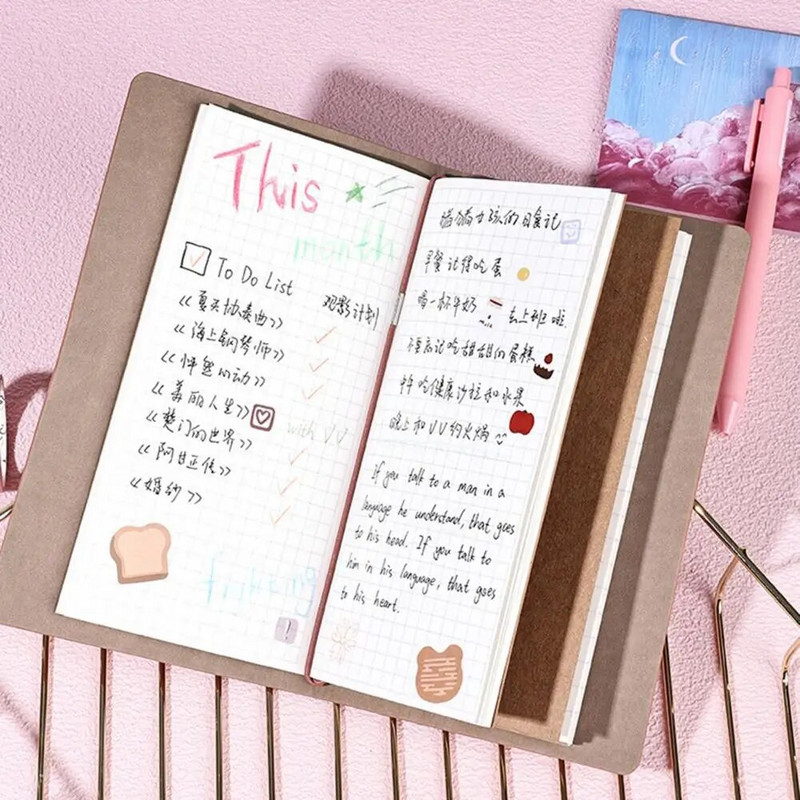 This
month
To Do List
观影计划
《夏天协奏曲》
《海上钢琴师》
《怦然心动》
《美丽人生》
with VV
《楚门的世界》
《阿甘正传》
《婚纱》
的日食记
早餐记得吃蛋
喝一杯牛奶 去上班啦.
不要忘记吃甜甜的蛋糕
中午吃健康沙拉和水果
晚上和VV约火锅
if you talk to a man in a
language he understand, that goes
to his head. If you talk to
him in his language, that goes
to his heart.